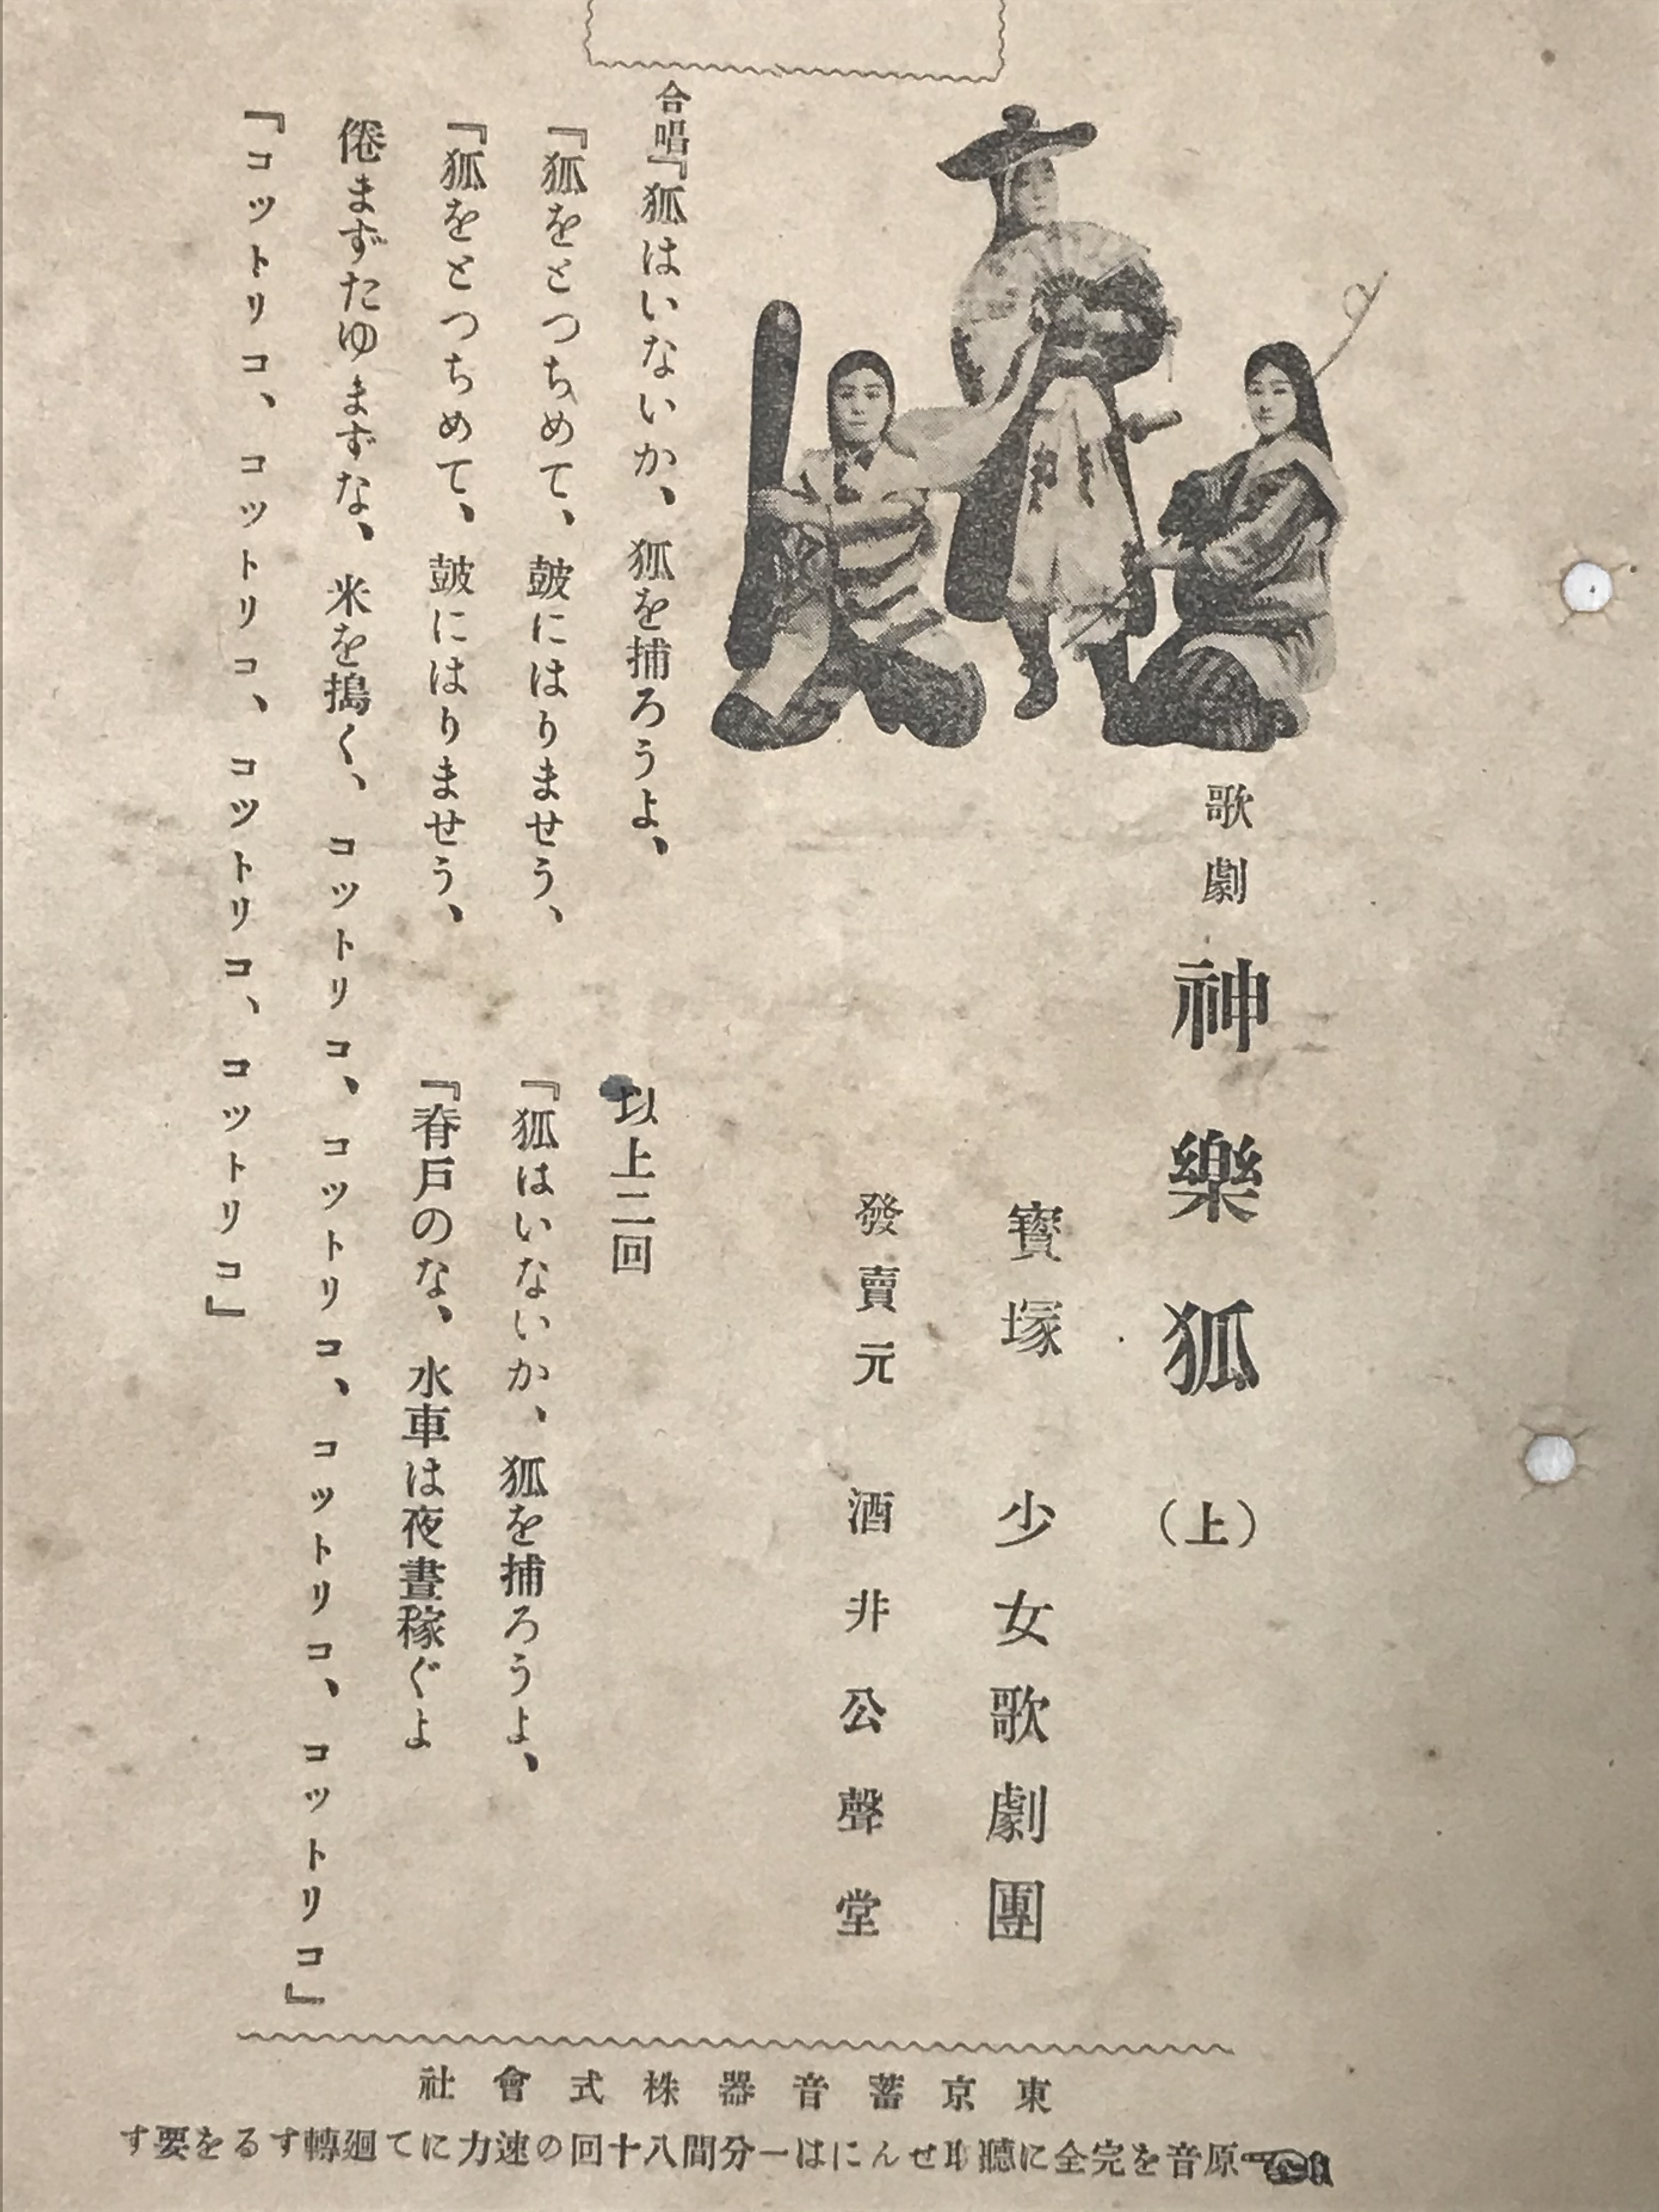 歌劇 神樂狐 （上）
寳塚 少女歌劇團
發賣元 酒非公聲堂
合唱『狐はいないか、狐を捕ろうよ、
『狐をとつちめて、皷にはりませう、
『狐をとつちめて、皷にはりませう、
以上二回
『狐はいないか、狐を捕ろうよ、
『脊戸のな、水車は夜晝稼ぐよ
倦まずたゆまずな、米を搗く、コットリコ、コットリコ、コットリコ、コットリコ』
『コットリコ、コットリコ、コットリコ、コットリコ』
東京蓄音器株式會社
原音を完全に聽取せんには一分間八十回の速力にて廻轉するを要す